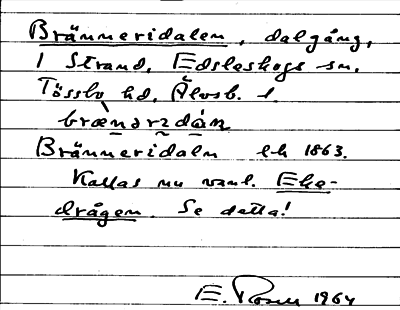 Bränneridalen, dalgång,
i Strand, Edsleskogs sn.
Tössbo hd, Älvsb. l.
brænərᴉdán
Bränneridaln Ek 1863.
Kallas nu vanl. Eke-
drågen. Se detta!
E. Rosell 1964